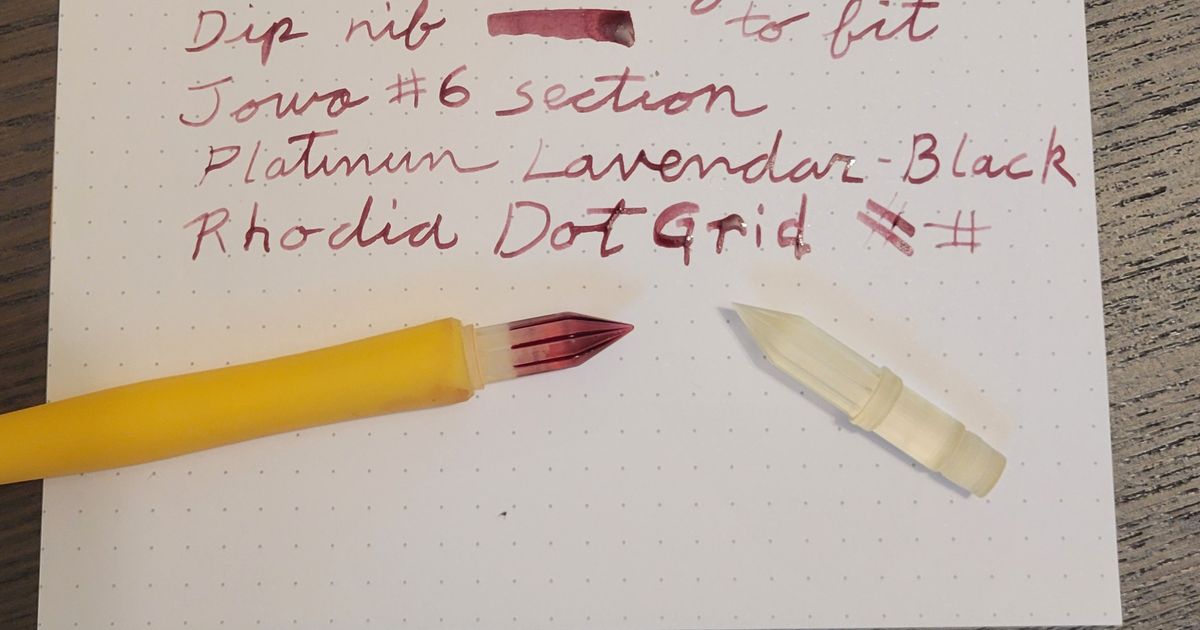 Dip nib to fit
Jowo #6 section
Platinum Lavendar-Black
Rhodia Dot Grid # #